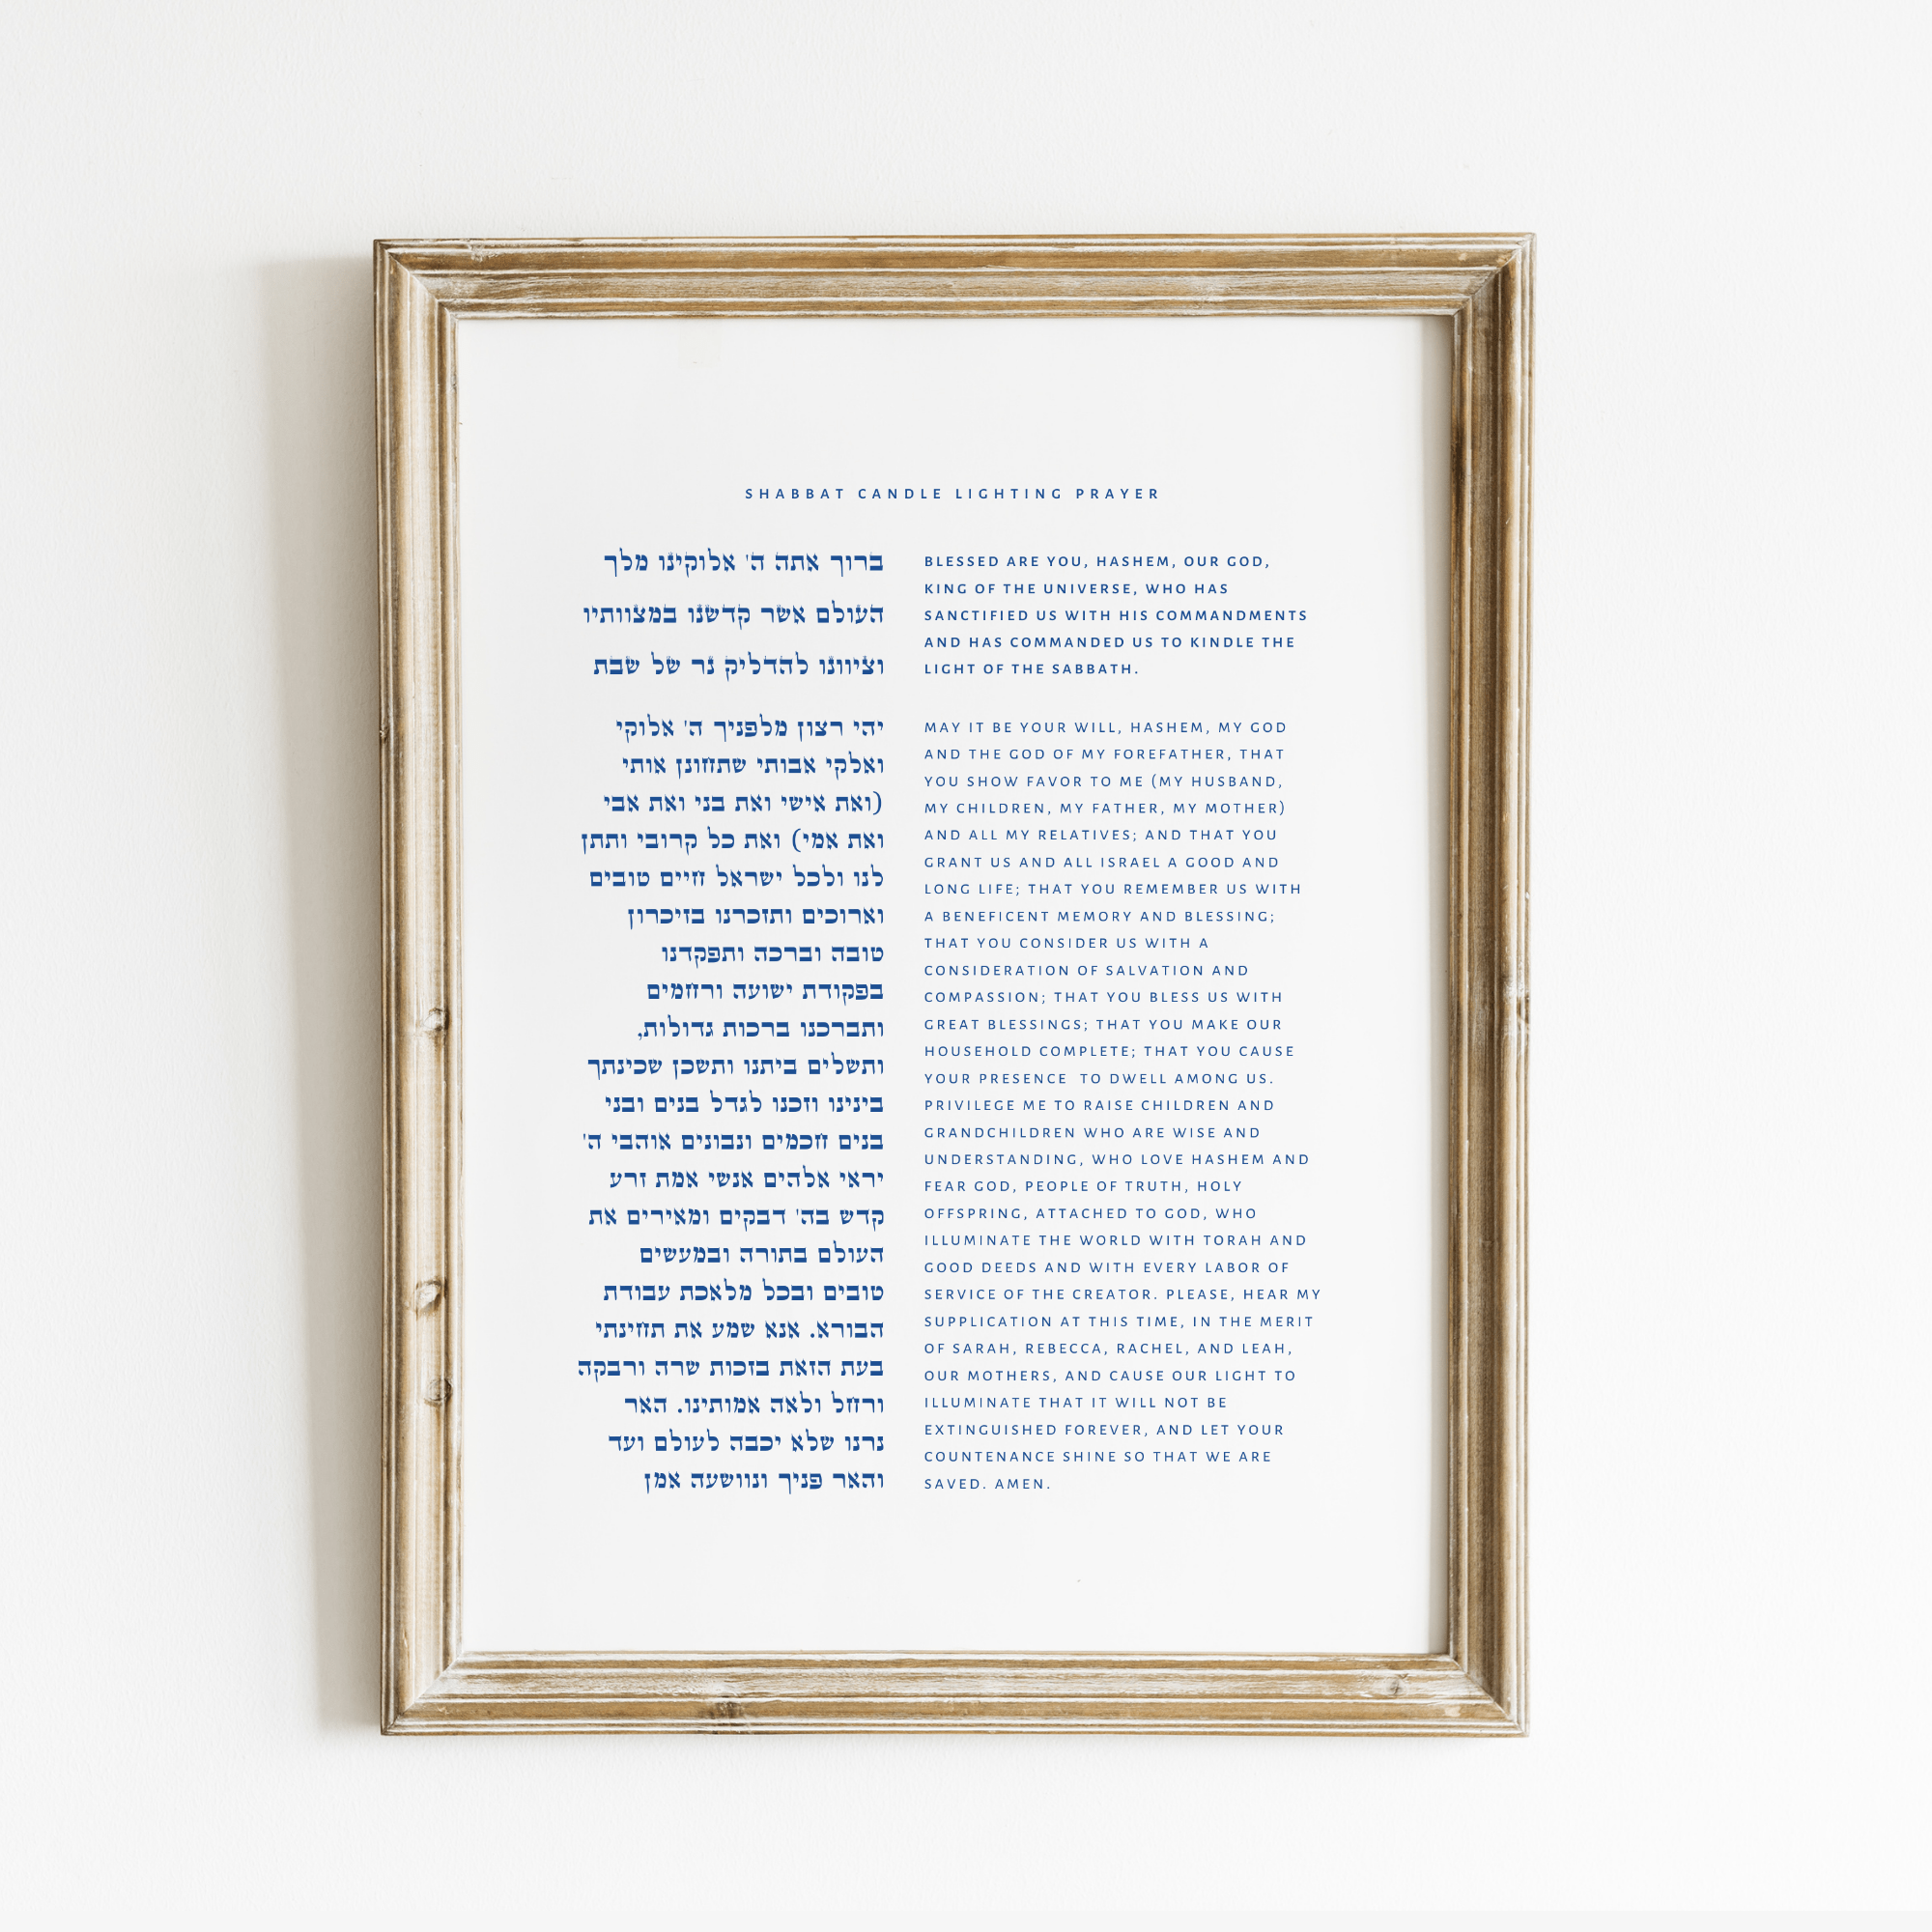 SHABBAT CANDLE LIGHTING PRAYER
ברוך אתה ה' אלוקינו מלך
העולם אשר קדשנו במצוותיו
וציוונו להדליק נר של שבת
יהי רצון מלפניך ה' אלוקי
ואלקי אבותי שתחונן אותי
(ואת אישי ואת בני ואת אבי
ואת אמי) ואת כל קרובי ותתן
לנו ולכל ישראל חיים טובים
וארוכים ותזכרנו בזיכרון
טובה וברכה ותפקדנו
בפקודת ישועה ורחמים
ותברכנו ברכות גדולות,
ותשלים ביתנו ותשכן שכינתך
בינינו וזכנו לגדל בנים ובני
בנים חכמים ונבונים אוהבי ה'
יראי אלהים אנשי אמת זרע
קדש בה' דבקים ומאירים את
העולם בתורה ובמעשים
טובים ובכל מלאכת עבודת
הבורא. אנא שמע את תחינתי
בעת הזאת בזכות שרה ורבקה
ורחל ולאה אמותינו. האר
נרנו שלא יכבה לעולם ועד
והאר פניך ונוושעה אמן
BLESSED ARE YOU, HASHEM, OUR GOD,
KING OF THE UNIVERSE, WHO HAS
SANCTIFIED US WITH HIS COMMANDMENTS
AND HAS COMMANDED US TO KINDLE THE
LIGHT OF THE SABBATH.
MAY IT BE YOUR WILL, HASHEM, MY GOD
AND THE GOD OF MY FOREFATHER, THAT
YOU SHOW FAVOR TO ME (MY HUSBAND,
MY CHILDREN, MY FATHER, MY MOTHER)
AND ALL MY RELATIVES; AND THAT YOU
GRANT US AND ALL ISRAEL A GOOD AND
LONG LIFE; THAT YOU REMEMBER US WITH
A BENEFICENT MEMORY AND BLESSING;
THAT YOU CONSIDER US WITH A
CONSIDERATION OF SALVATION AND
COMPASSION; THAT YOU BLESS US WITH
GREAT BLESSINGS; THAT YOU MAKE OUR
HOUSEHOLD COMPLETE; THAT YOU CAUSE
YOUR PRESENCE TO DWELL AMONG US.
PRIVILEGE ME TO RAISE CHILDREN AND
GRANDCHILDREN WHO ARE WISE AND
UNDERSTANDING, WHO LOVE HASHEM AND
FEAR GOD, PEOPLE OF TRUTH, HOLY
OFFSPRING, ATTACHED TO GOD, WHO
ILLUMINATE THE WORLD WITH TORAH AND
GOOD DEEDS AND WITH EVERY LABOR OF
SERVICE OF THE CREATOR. PLEASE, HEAR MY
SUPPLICATION AT THIS TIME, IN THE MERIT
OF SARAH, REBECCA, RACHEL, AND LEAH,
OUR MOTHERS, AND CAUSE OUR LIGHT TO
ILLUMINATE THAT IT WILL NOT BE
EXTINGUISHED FOREVER, AND LET YOUR
COUNTENANCE SHINE SO THAT WE ARE
SAVED. AMEN.